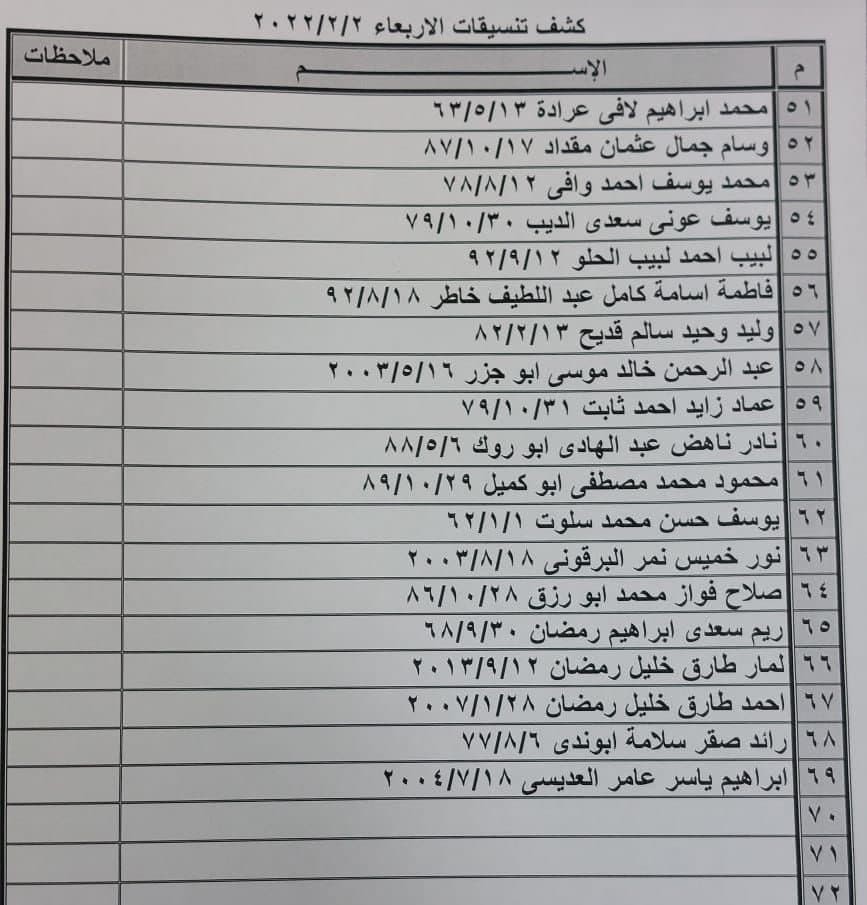 كشف تنسيقات الاربعاء ٢٠٢٢/٢/٢
م الإســـــــم ملاحظات
٥١ محمد ابراهيم لافى عرادة ٦٣/٥/١٣
٥٢ وسام جمال عثمان مقداد ٨٧/١٠/١٧
٥٣ محمد يوسف احمد وافى ٧٨/٨/١٢
٥٤ يوسف عونى سعدى الديب ٧٩/١٠/٣٠
٥٥ لبيب احمد لبيب الحلو ٩٢/٩/١٢
٥٦ فاطمة اسامة كامل عبد اللطيف خاطر ٩٢/٨/١٨
٥٧ وليد وحيد سالم قديح ٨٢/٢/١٣
٥٨ عبد الرحمن خالد موسى ابو جزر ٢٠٠٣/٥/١٦
٥٩ عماد زايد احمد ثابت ٧٩/١٠/٣١
٦٠ نادر ناهض عبد الهادى ابو روك ٨٨/٥/٦
٦١ محمود محمد مصطفى ابو كميل ٨٩/١٠/٢٩
٦٢ يوسف حسن محمد سلوت ٦٢/١/١
٦٣ نور خميس نمر البرقونى ٢٠٠٣/٨/١٨
٦٤ صلاح فواز محمد ابو رزق ٨٦/١٠/٢٨
٦٥ ريم سعدى ابراهيم رمضان ٦٨/٩/٣٠
٦٦ لمار طارق خليل رمضان ٢٠١٣/٩/١٢
٦٧ احمد طارق خليل رمضان ٢٠٠٧/١/٢٨
٦٨ رائد صقر سلامة ابوندى ٧٧/٨/٦
٦٩ ابراهيم ياسر عامر العديسى ٢٠٠٤/٧/١٨
٧٠
٧١
٧٢